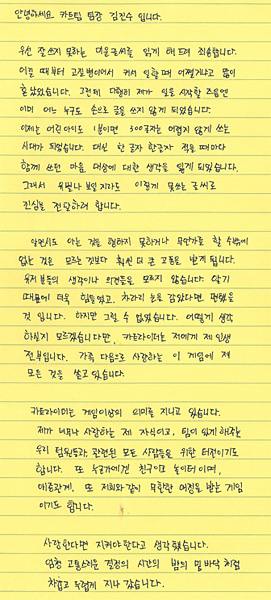 안녕하세요 카트팀 팀장 김진수 입니다.
우선 잘 쓰지 못하는 미운 글씨를 읽게 해드려 죄송합니다.
어릴 때부터 고질병이어서 커서 일할 때 어떻게 하냐고 많이
혼났었습니다. 그런데 다행히 제가 일을 시작할 즈음엔
이미 어느 누구도 손으로 글을 쓰지 않게 되었습니다.
이제는 어린아이도 1분이면 300글자는 어렵지 않게 쓰는
시대가 되었습니다. 대신 한 글자 한글자 적을 때마다
함께 쓰던 마음 대상에 대한 생각을 잃게 되었습니다.
그래서 유월나 보일지라도 이렇게 못쓰는 글씨로
진심을 전달하려 합니다.
알면서도 아는 것을 행하지 못하거나 무언가를 할 수밖에
없는 것은 모르는 것보다 훨씬 더 큰 고통을 받게 됩니다.
유저분들의 생각이나 의견들을 모르지 않습니다. 알기
때문에 더욱 힘들었고, 차라리 눈을 감았다면 편했을
것 입니다. 하지만 그럴 수 없었습니다. 어떻게 생각
하실지 모르겠습니다만, 카트라이더는 저에게 제 인생
전부입니다. 가족 다음으로 사랑하는 이 게임에 제
모든 것을 쏟고 있습니다.
카트라이더는 게임이상의 의미를 지니고 있습니다.
제가 너무나 사랑하는 제 자식이고, 팀이 있게 해주는
우리 팀원들과 관련된 모든 사람들을 위한 터전이기도
합니다. 또 누군가에겐 친구이고 놀이터이며,
애증관계. 또 저희와 같이 무한한 애정을 받는 게임
이기도 합니다.
사랑한다면 지켜야 한다고 생각했습니다.
엄청 고통스러운 결정의 시간의 밤이 밑바닥처럼
차갑고 무겁게 지나 갔습니다.